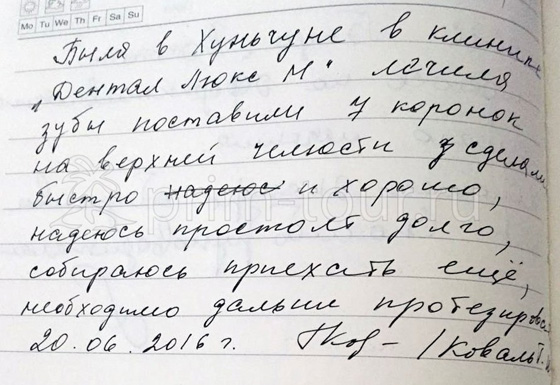 Mo Tu We Th Fr Sa Su
Была в Хуньчуне в клинике
"Дентал Люкс М" лечила
зубы поставили 7 коронок
на верхней челюсти сделали
быстро надеюс и хорошо,
надеюсь простоят долго,
собираюсь приехать ещё,
необходимо дальше протезирова
20.06.2016 г. /Коваль Т.
prim-tour.ru